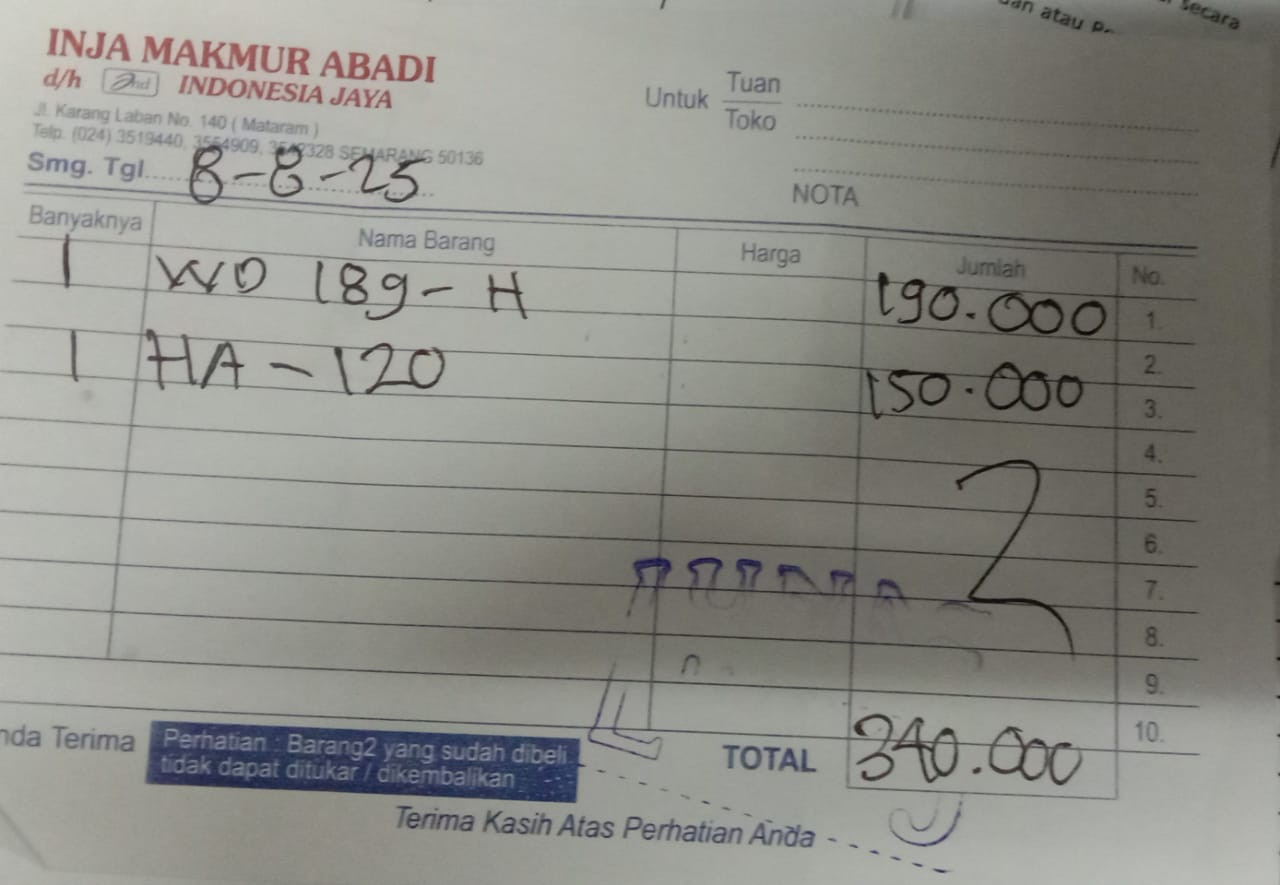 secara
dan atau P
INJA MAKMUR ABADI
d/h Ind INDONESIA JAYA
Jl. Karang Laban No. 140 ( Mataram )
Telp. (024) 3519440, 3554909, 3542328 SEMARANG 50136
Smg. Tgl. 8-8-25
Untuk Tuan
Toko
NOTA
Banyaknya Nama Barang Harga Jumlah No.
1 WD 189-H 190.000 1.
2.
1 HA-120 150.000 3.
4.
5.
6.
7.
8.
9.
10.
nda Terima
Perhatian : Barang2 yang sudah dibeli
tidak dapat ditukar / dikembalikan
TOTAL 340.000
Terima Kasih Atas Perhatian Anda